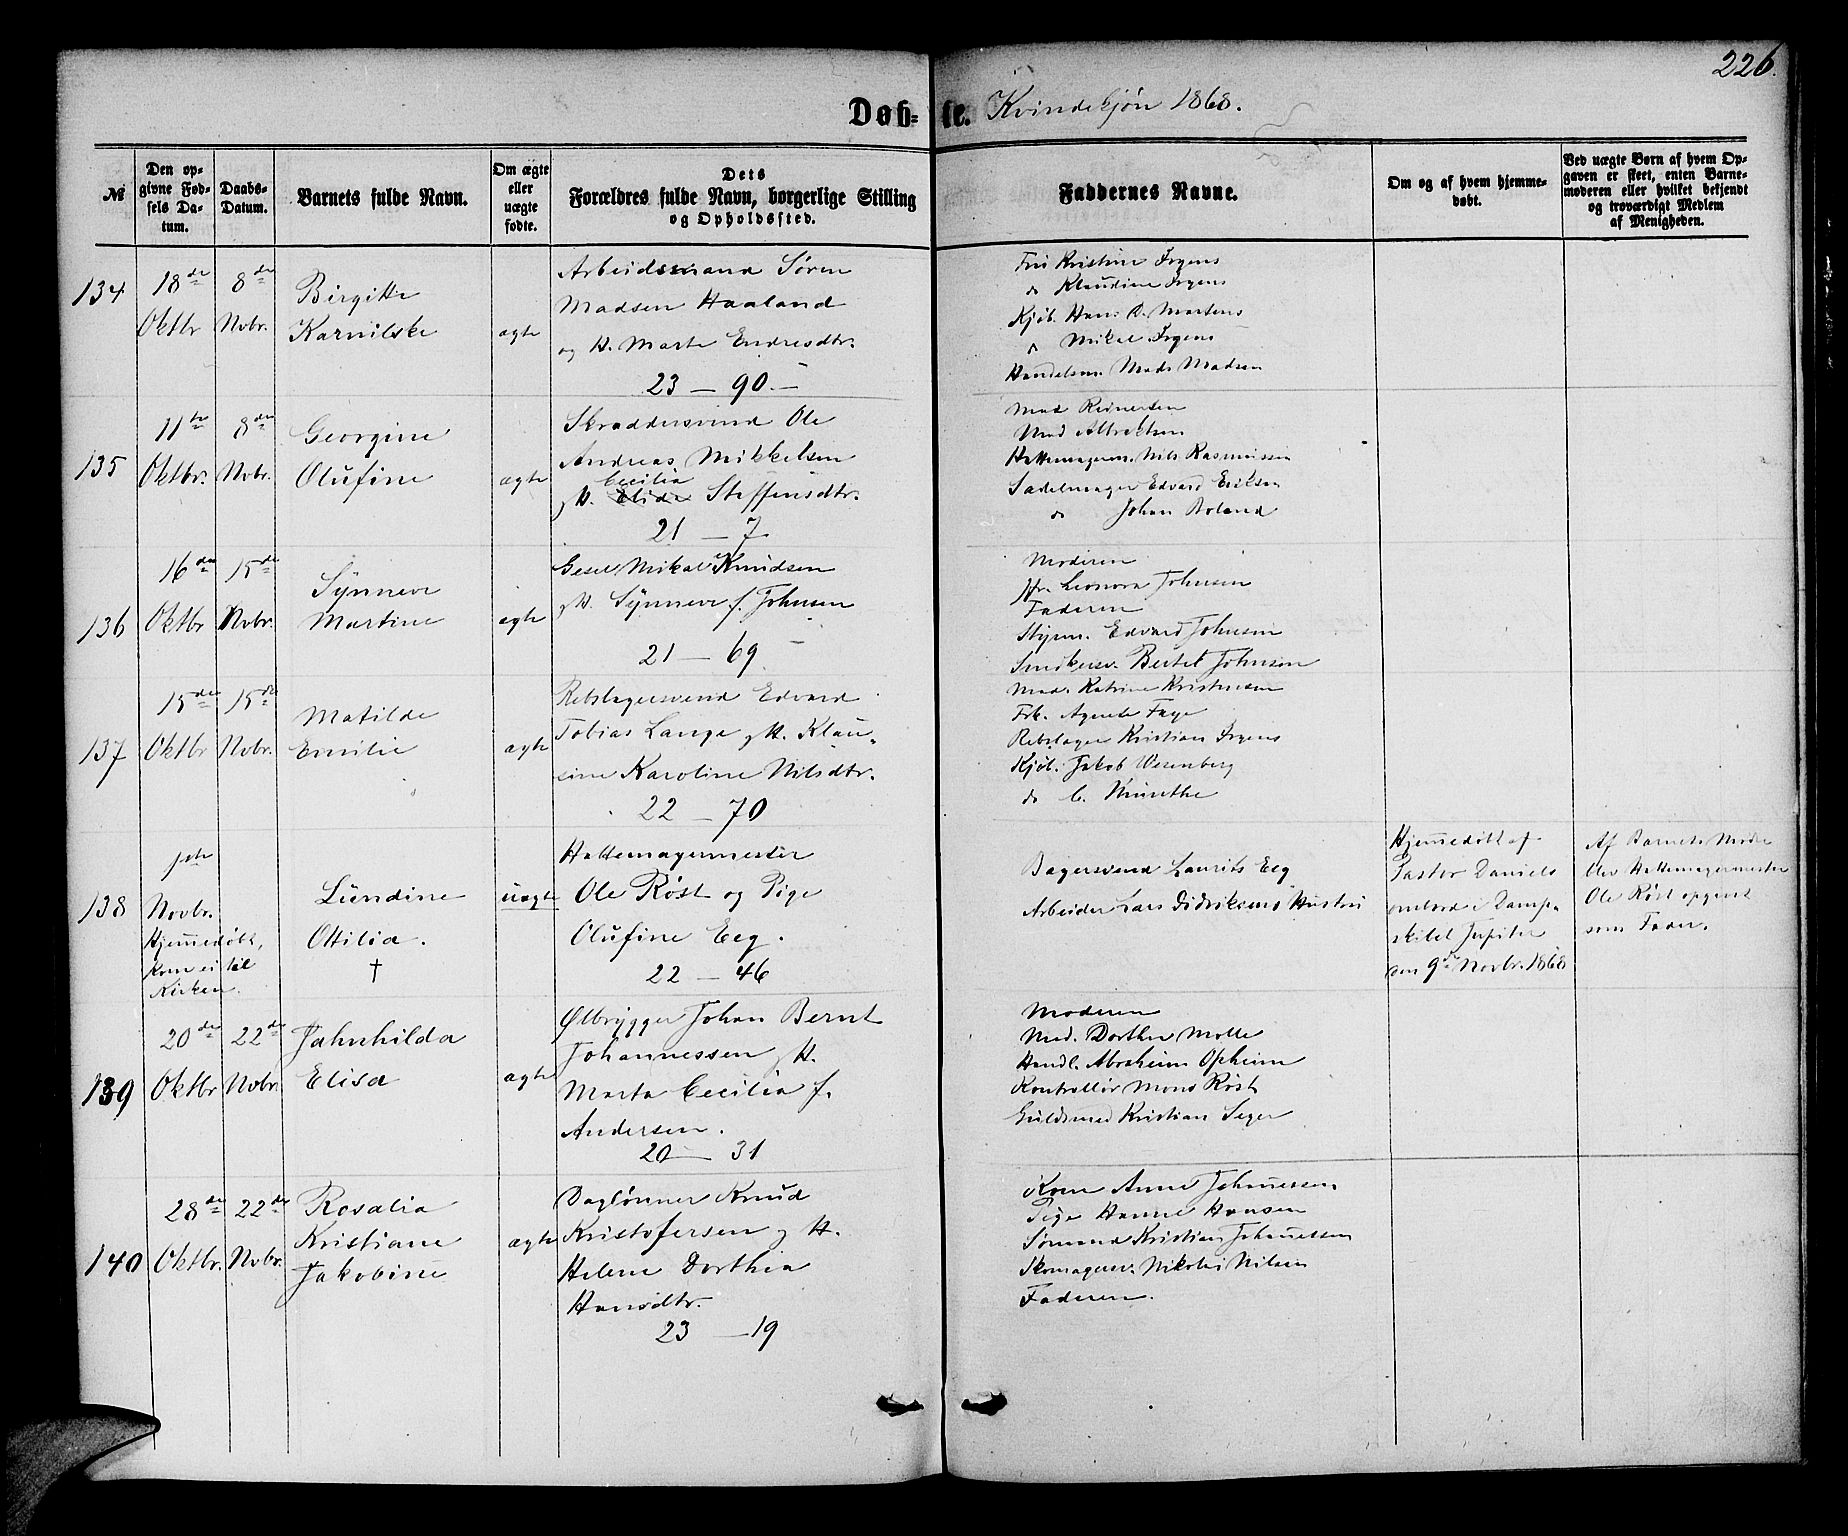 226.
Døb=te. Kvindekjøn 1868.
№
Den op-
givne Fød-
sels Da-
tum.
Daabs-
Datum.
Barnets fulde Navn.
Om ægte
eller
uægte
fødte.
Dets
Forældres fulde Navn, borgerlige Stilling
og Opholdssted.
Faddernes Navne.
Om og af hvem hjemme-
døbt.
Ved uægte Børn af hvem Op-
gaven er skeet, enten Barne-
moderen eller hvilket bekjendt
og troværdigt Medlem
af Menigheden.
134
18de
Oktbr
8de
Novbr.
Birgitte
Karnilske
ægte
Arbeidsmand Søren
Madsen Haaland
og H. Marte Endresdtr.
23 — 90.
Kristine Irgens
do Klaudine Irgens
Kjøb. Hans D. Martens
Mikal Irgens
Handelsm. Mads Madsen
135
11te
Oktbr.
8de
Novbr.
Georgine
Olufine
ægte
Skræddersvend Ole
Andreas Mikkelsen
Cecilia
g H. Elide Steffensdtr.
21 — 7
Mad Reinertsen
Mad Albrektsen
Hattemagersv. Nils Rasmussen
Sadelmager Edvard Eriksen
do Johan Boland
136
16de
Oktbr
15de
Novbr.
Synneve
Martine
ægte
Gesel Mikal Knudsen
g H. Synneve f. Johnsen
21 — 69
Moderen
Fr. Leonora Johnsen
Faderen
Styrm. Edvard Johnsen
Snedkersv. Bertel Johnsen
137
15de
Oktbr
15de
Novbr.
Matilde
Emilie
ægte
Rebslagersvend Edvard
Tobias Lange g H. Klau-
sine Karoline Nilsdtr.
22 — 70
Mad. Katrine Kristensen
Frk. Agnete Faye
Rebslager Kristian Irgens
Kjøb. Jakob Wesenberg
do C. Munthe
138
1ste
Novbr.
Hjemmedøbt,
Kom ei til
Kirken.
Lundine
Ottilia.
†
uægte
Hattemagermester
Ole Røst og Pige
Olufine Eeg.
22 — 46
Bagersvend Laurits Eeg
Arbeider Lars Didriksens Hustru
Hjemmedøbt af
Pastor Daniels
ombord i Damp-
skibet Jupiter
den 9de Novbr. 1868
Af Barnets Moder
blev Hattemagermester
Ole Røst opgivet
som Fader.
139
20de
Oktbr
22de
Novbr.
Jahnhilda
Elisa
ægte
Ølbrygger Johan Bernt
Johannessen g H.
Marta Cecilia f.
Andersen.
20 — 31
Moderen
Mad. Dorthea Molle
Handl. Abraham Opheim
Kontrollør Mons Røst
Guldsmed Kristian Seger
140
28de
Oktbr.
22de
Novbr.
Rosalia
Kristiane
Jakobine
ægte
Daglønner Knud
Kristofersen g H.
Helene Dorthea
Hansdtr.
23 — 19
Kone Anne Johannessen
Pige Hanne Hansen
Sømand Kristian Johannessen
Skomagersv. Nikolai Nilsen
Faderen.